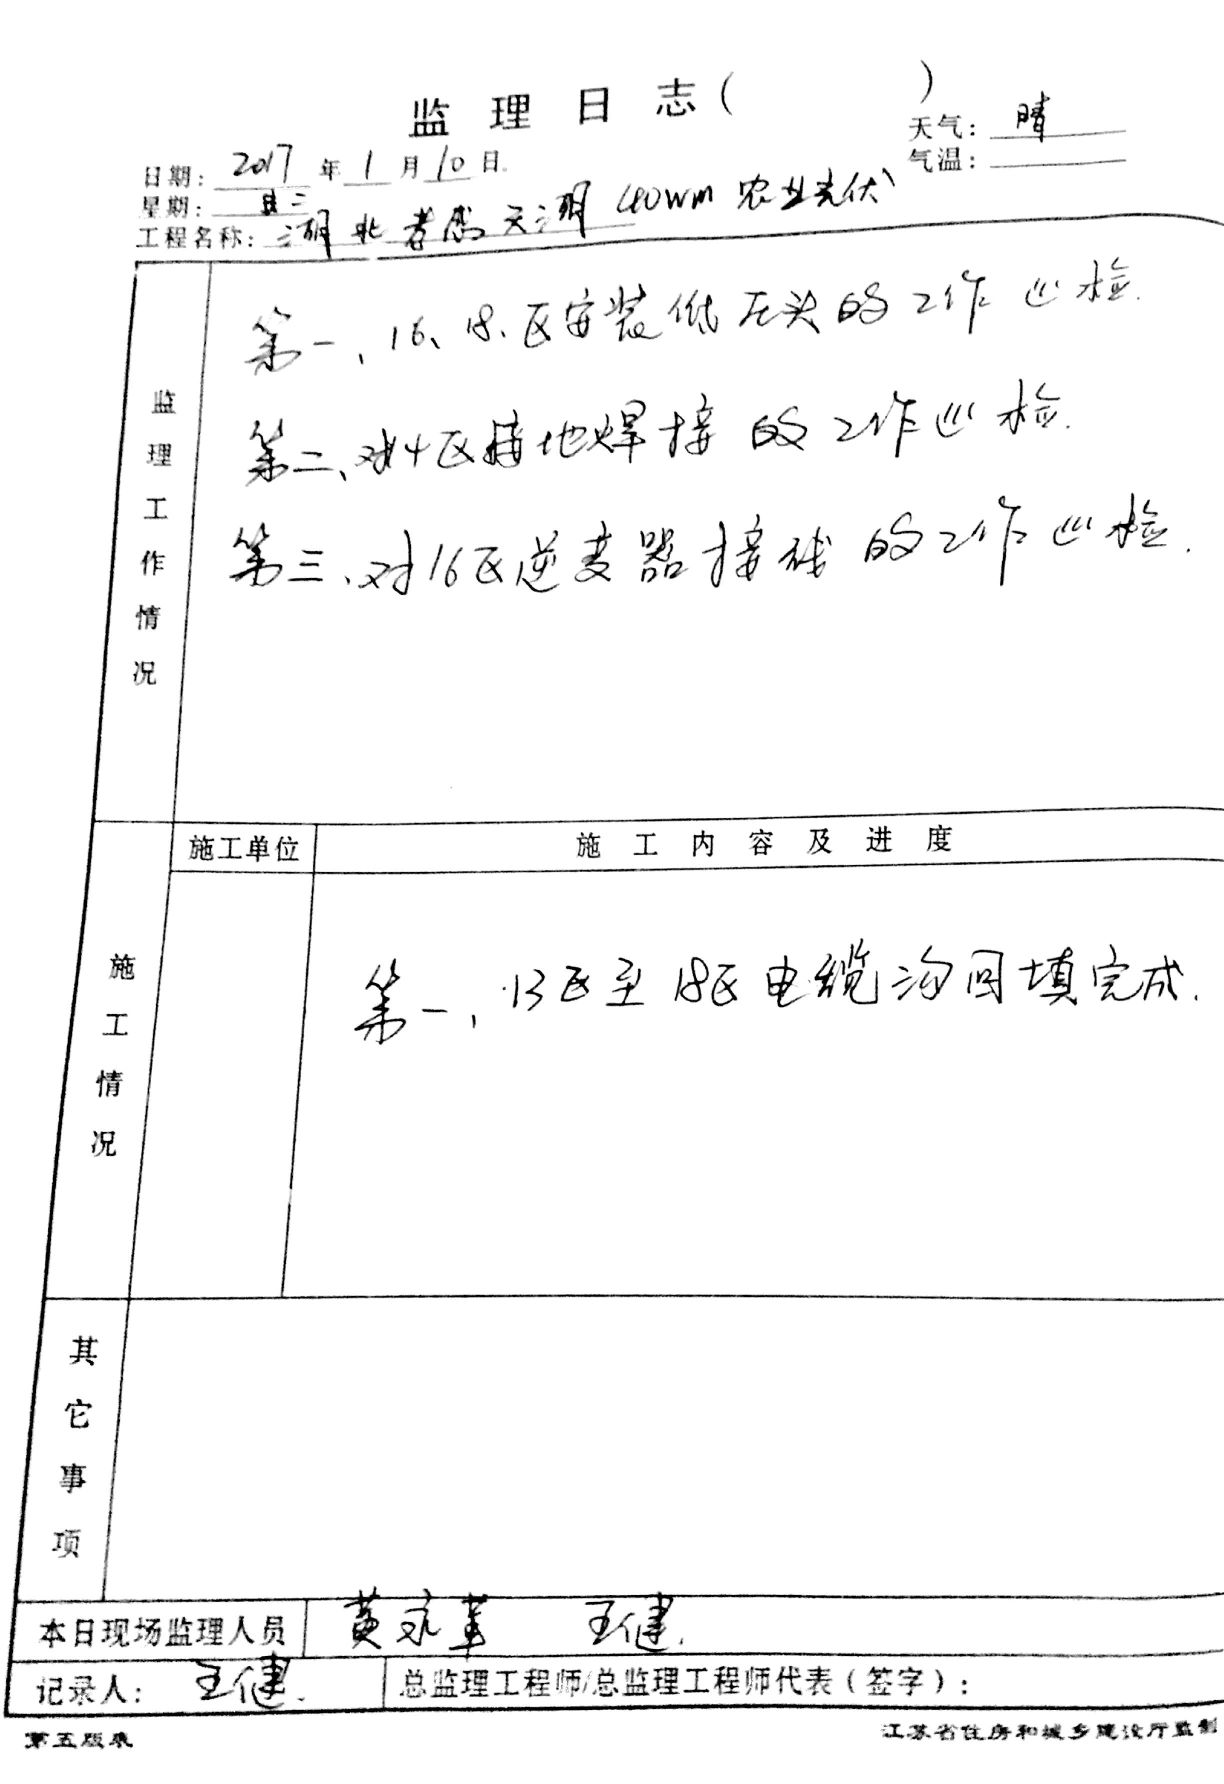 监理日志(  )
天气: 晴
日期: 2017 年 1 月 10 日.
气温:
星期: 二
工程名称: 湖北孝感天湖 40wm 农业光伏
监理工作情况
第一、16、18、区安装低压头的工作巡检.
第二、对4区接地焊接的工作巡检.
第三、对16区逆变器接线的工作巡检.
施工情况
施工单位 施工内容及进度
第一、13区至18区电缆沟回填完成.
其它事项
本日现场监理人员 黄永革 王健.
记录人: 王健. 总监理工程师/总监理工程师代表(签字):
第五版表 江苏省住房和城乡建设厅监制